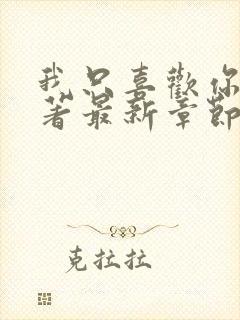 我只喜歡你
著最新章節
克拉拉